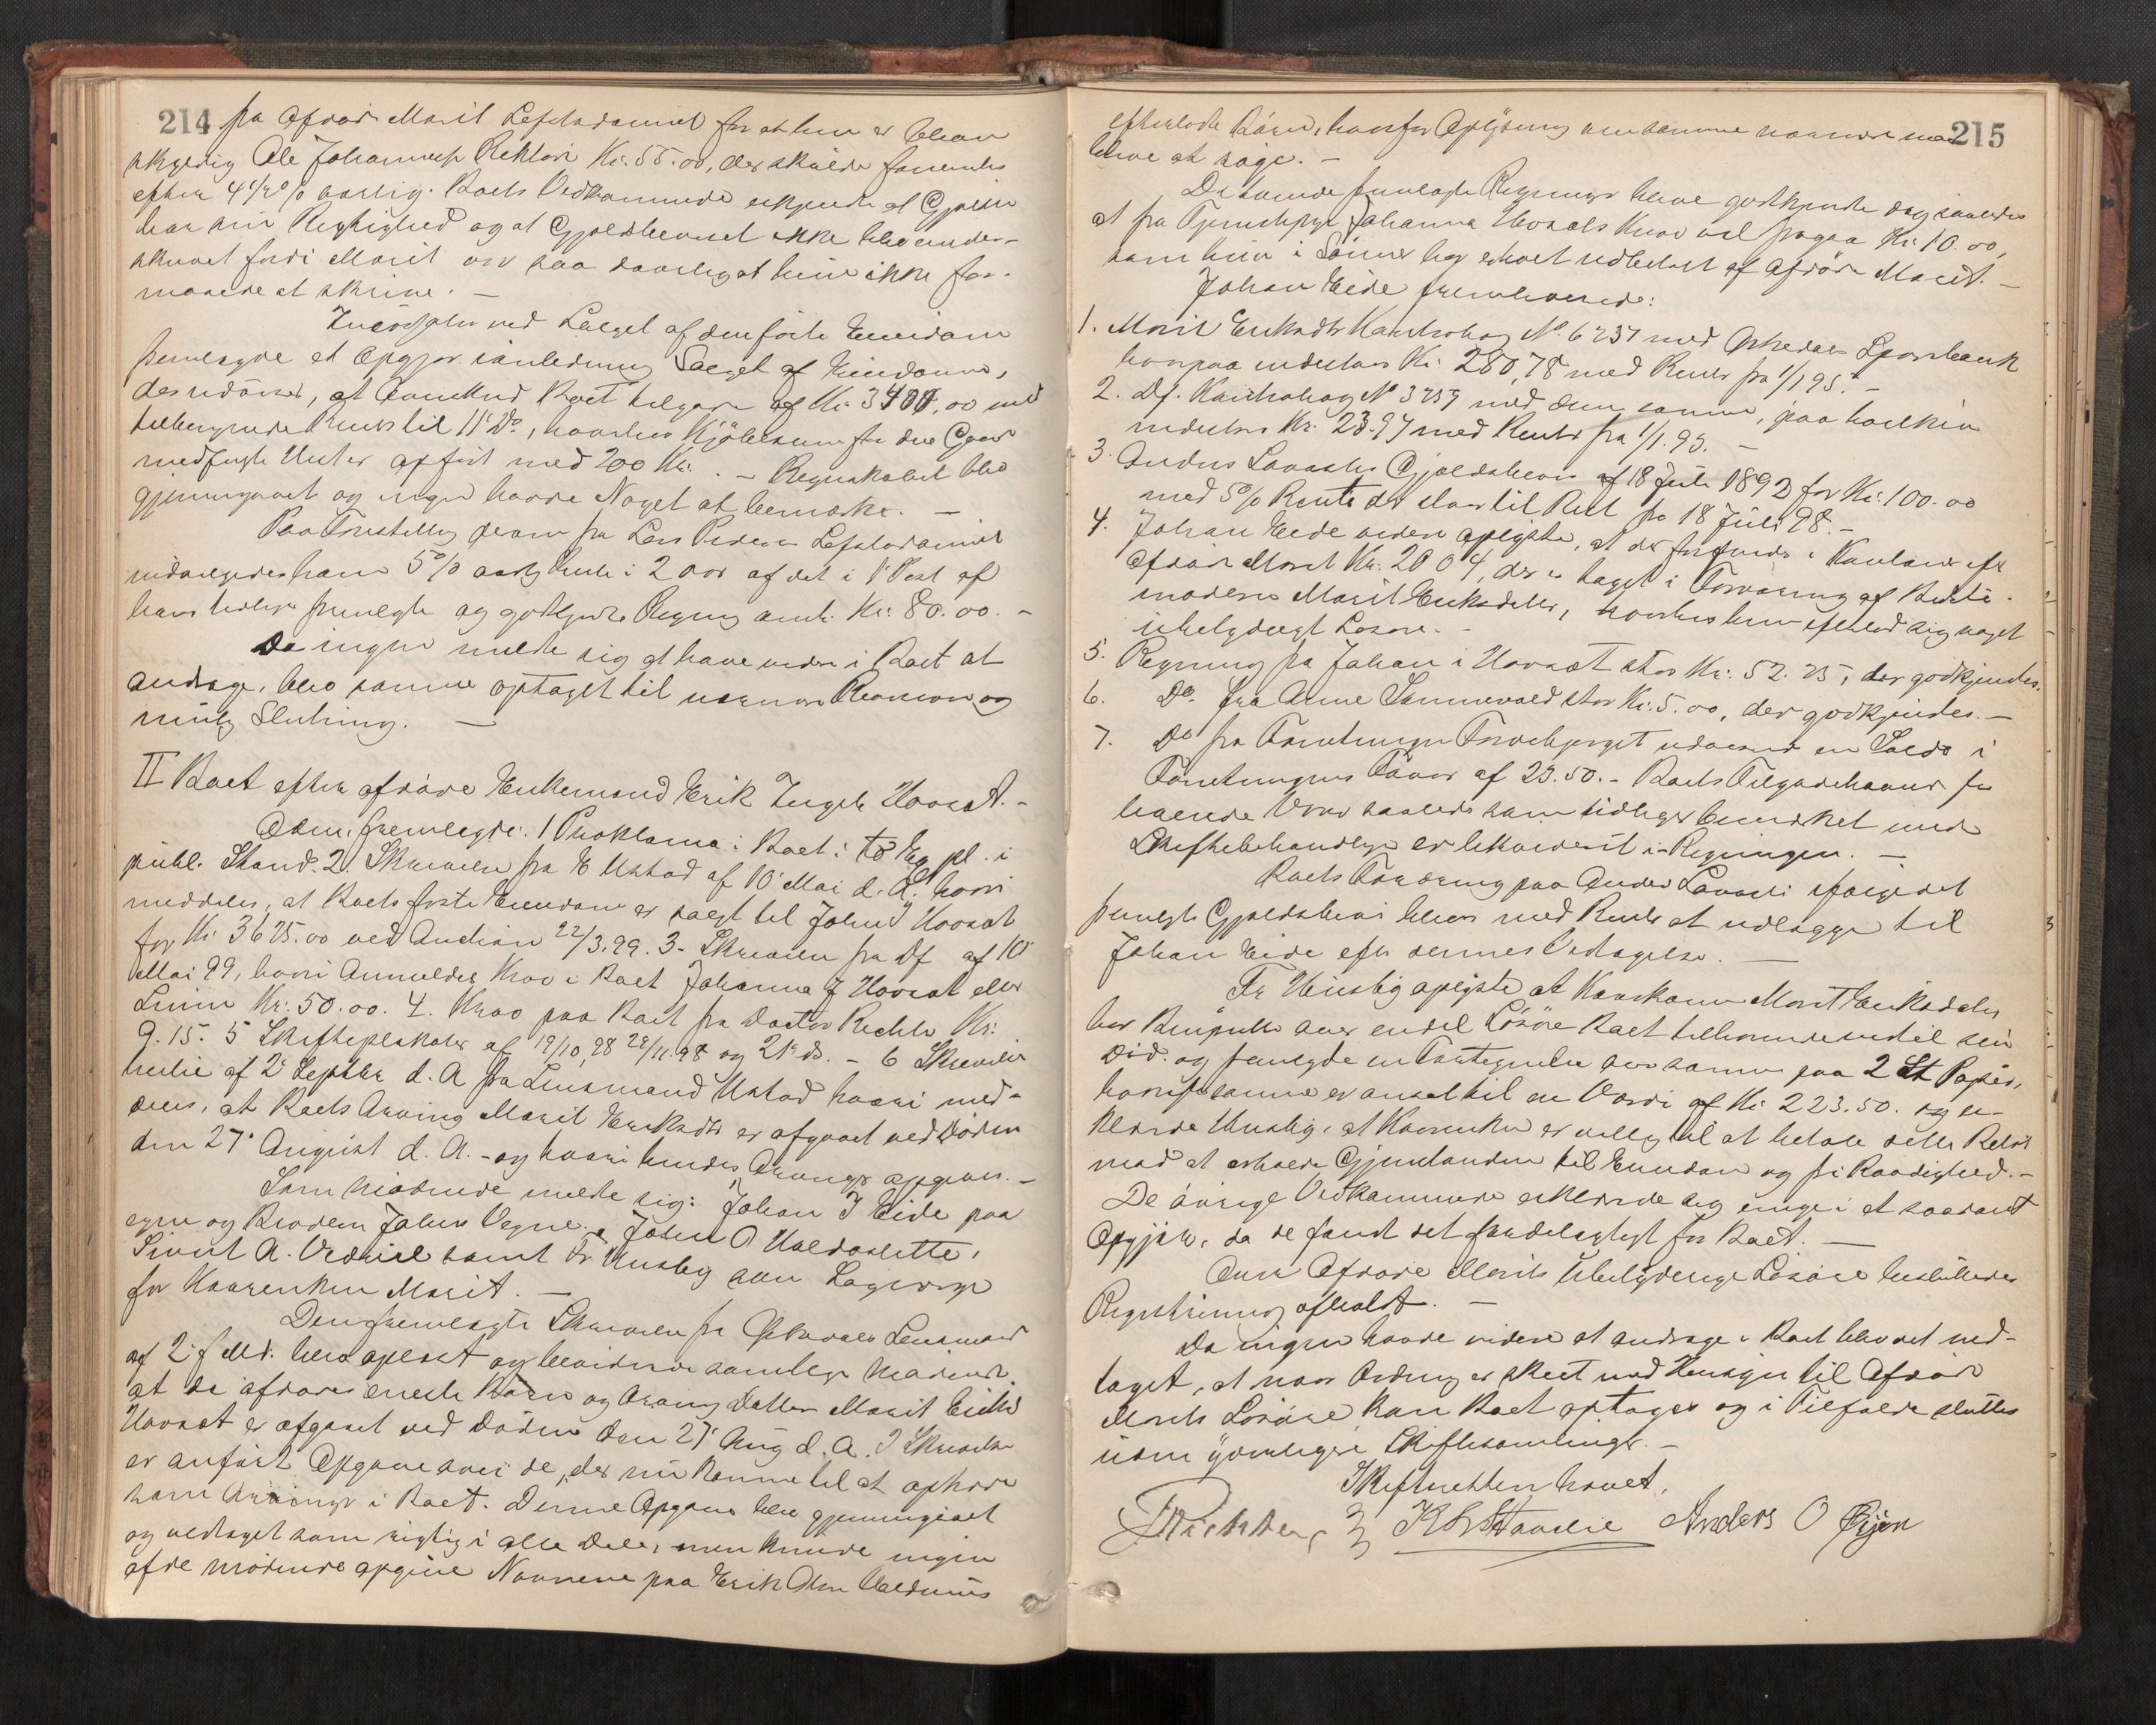 214
fra Afdøde Marit Lefstadaunet for at hun er bleven
skyldig Ole Johannesen Rektorli Kr. 55.00, der skulde forrentes
efter 4 1/2 % aarlig. Boets Vedkommende erkjendte at Gjælden
har sin Rigtighed og at Gjældsbeviset ikke blev under-
skrevet fordi Marit var saa daarlig at hun ikke for-
maaede at skrive. —
ved Salget af den faste Eiendom
fremlagde et Opgjør i anledning Salget af Eiendommen,
der udviser, at Boet tilgode Kr. 3401,00 med
tilbørende Renter til 11' Ds, hvorhos Kjøbesum for den
medfulgte opført med 200 Kr. — Regnskabet blev
gjennemgaaet og ingen havde Noget at bemærke. —
Paa Forestilling derom fra Lars Pedersen Lefstadaunet
indvilgedes ham 5 % aarlig Rente i 2 Aar af det i 1' Post af
hans tidligere fremlagte og godkjendte Regning anm. Kr. 80.00. —
Da ingen meldte sig at have videre i Boet at
andrage, blev samme optaget til nærmere Revision og
mulig Slutning. —
II Boet efter afdøde Enkemand Erik Ingebr. Hovsæt. —
Adm. fremlagde: 1 Proklama i Boet: to Eg. pl. i
publ. Stand. 2. Skrivelse fra E Ustad af 10' Mai d. A. hvori
meddeles, at Boets faste Eiendom er solgt til John I Hovsæt
for Kr. 3625.00 ved Auktion 22/3.99. 3. Skrivelse fra Df. af 10'
Mai 99, hvori Anmeldes Krav i Boet Johanna J Hovsæt eller
Lium Kr. 50.00. 4. Krav paa Boet fra Doctor Richter Kr.
9.15. 5 Skifteplakater af 19/10 98 29/11.98 og 21' ds. — 6 Skrivelse
af 2' Septbr d. A fra Lensmand Ustad hvori med-
deles, at Boets Arving Marit Eriksdtr er afgaaet ved Døden
den 27' August d. A. — og hvori hendes Arvinger opgives. —
Som mødende meldte sig: Johan J Eide paa
egne og Broderen Johns Vegne, John O Haldoslette,
Sivert A. samt Fr Husby som Lagværge
for Kaarenken Marit. —
Den fremlagte Skrivelse fra Orkedals Lensmand
af 2' f. Md. blev oplæst og bevidnede samtlige mødende
at de afdødes eneste Barn og Arving Datter Marit Eriksd
Hovsæt er afgaaet ved Døden den 27' Aug d. A. I Skrivelsen
er anført Opgave over de, der nu komme til at optræde
som Arvinger i Boet. Denne Opgave blev gjennemgaaet
og vedtaget som rigtig i alle Dele, men kunde ingen
af de mødende opgive Navnene paa Erik Olsen
215
efterladte Børn, hvorfor Oplysning om samme nærmere maa
blive at søge. —
De to fremlagte Regninger bleve godkjendte dog saaledes
at fra Tjenestepige Johanna Hovsæts Krav vil fragaa Kr. 10.00,
som hun i Sommer har erholdt udbetalt af Afdøde Marit. —
Johan Eide fremleverede:
1. Marit Eriksdtr Kontrabog No. 6237 med Orkedals Sparebank
hvorpaa indestaar Kr. 280,78 med Renter fra 1/1 95. —
2. Df. Kontrabog No 3759 med den samme, paa hvilken
indestaar Kr. 23.97 med Renter fra 1/1.95. —
3. Anders Lavaslis Gjældsbevis af 18 Juli 1892 for Kr. 100.00
med 5 % Rente der staar til Rest fra 18 Juli 98. —
4. Johan Eide videre oplyste, at der forfindes i Kontanter efter
Afdøde Marit Kr. 20.04, der er taget i Forvaring af Beste-
moderen Marit Eriksdatter, hvorhos hun efterlod sig noget
ubetydeligt Løsøre. —
5. Regning fra Johan i Hovsæt stor Kr. 52.25, der godkjendes.
6. Do. fra Arne Sommervold stor Kr. 5.00, der godkjendes. —
7. Do fra Forretningen Torvebjerget udvisende en Saldo i
Forretningens Favør af 23.50. — Boets Tilgodehavende for
Varer saaledes som tidligere bemærket under
Skiftebehandlingen er likvideret i Regningen. —
Boets Fordring paa Anders Lavasli ifølge det
fremlagte Gjældsbevis bliver med Renter at udlægge til
Johan Eide efter dennes Vedtagelse. —
Fr Husby oplyste at Kaarkonen Marit Eriksdatter
har Benyttelse over endel Løsøre Boet tilhørende indtil sin
Død. og fremlagde en Fortegnelse over samme paa 2 St Papir,
hvorefter samme er ansat til en Værdi af Kr. 223.50. og er-
klærede Husby, at Kaarenken er villig til at betale dette Beløb
mod at erholde Gjenstandene til Eiendom og fri Raadighed. —
De øvrige Vedkommende erklærede sig enige i et saadant
Opgjør, da de fandt det fordelagtigt for Boet. —
Over Afdøde Marits ubetydelige Løsøre besluttedes
Registrering afholdt. —
Da ingen havde videre at andrage i Boet blev det ved-
taget, at naar Ordning er skeet med Hensyn til Afdøde
Marits Løsøre kan Boet optages og i Tilfælde sluttes
uden yderligere Skiftesamlinger. —
Skifteretten hævet,
Richter K L Havdlie Anders O Øyen